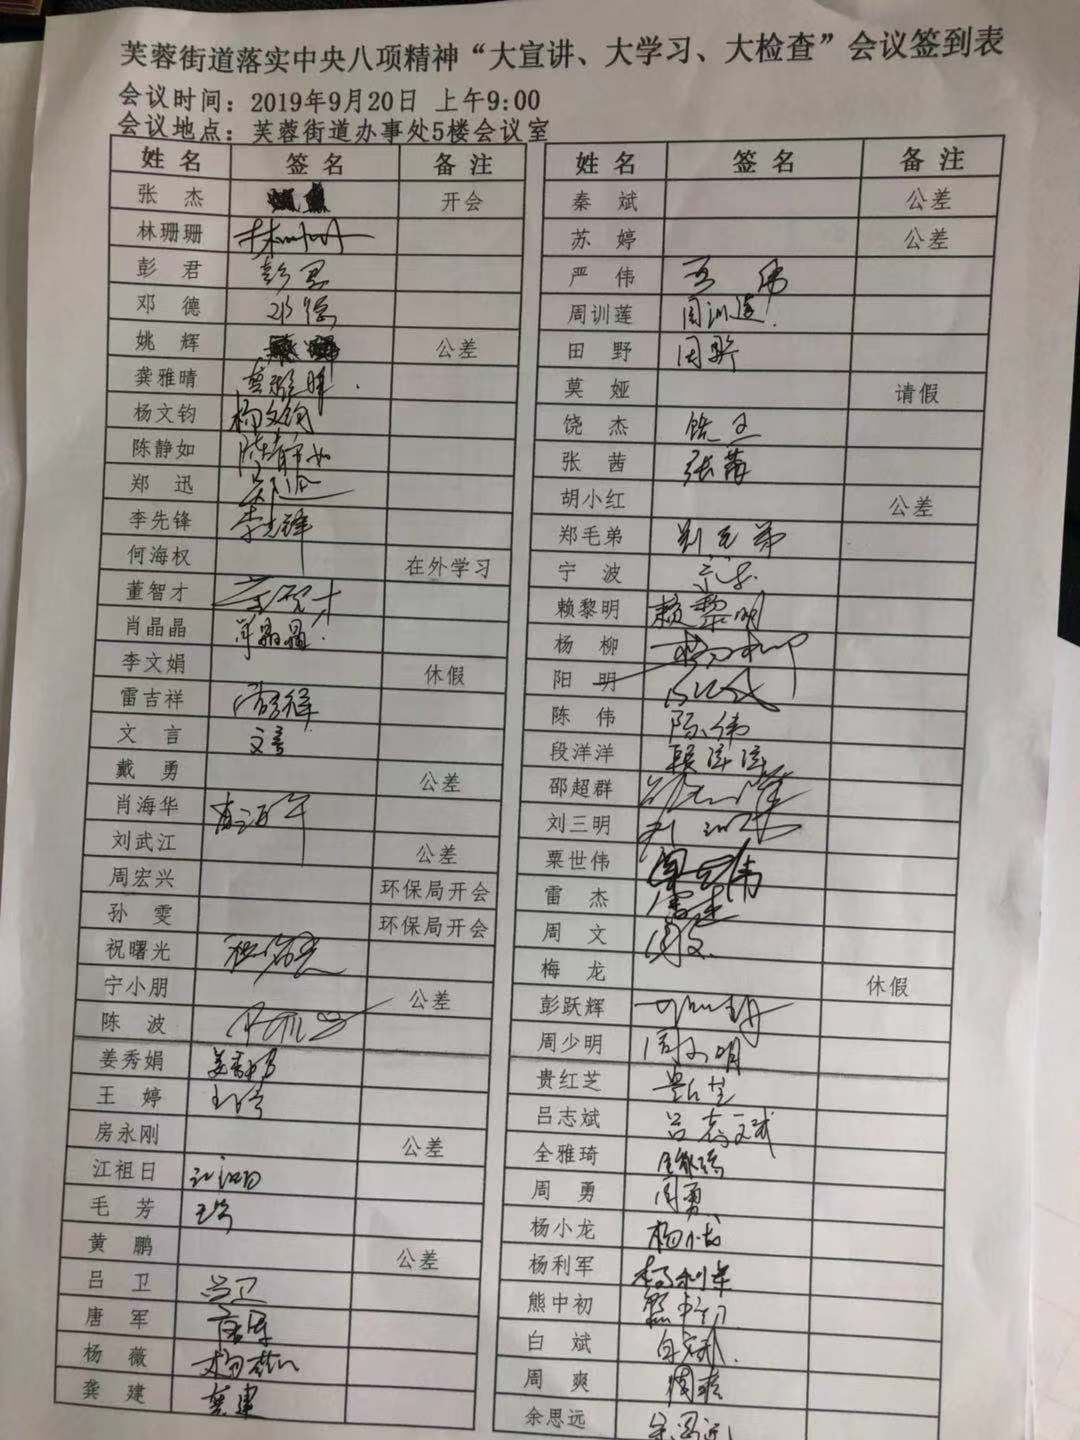 芙蓉街道落实中央八项精神“大宣讲、大学习、大检查”会议签到表
会议时间：2019年9月20日 上午9:00
会议地点：芙蓉街道办事处5楼会议室
姓 名 签 名 备 注
张 杰 开会
林珊珊
彭 君 彭君
邓 德 邓德
姚 辉 公差
龚雅晴 龚雅晴
杨文钧 杨文钧
陈静如 陈静如
郑 迅 郑迅
李先锋 李先锋
何海权 在外学习
董智才 董智才
肖晶晶 肖晶晶
李文娟 休假
雷吉祥 雷吉祥
文 言 文言
戴 勇 公差
肖海华 肖海华
刘武江 公差
周宏兴 环保局开会
孙 雯 环保局开会
祝曙光 祝曙光
宁小朋 公差
陈 波
姜秀娟 姜秀娟
王 婷 王婷
房永刚 公差
江祖日 江祖日
毛 芳
黄 鹏 公差
吕 卫 吕卫
唐 军 唐军
杨 薇 杨薇
龚 建 龚建
姓 名 签 名 备 注
秦 斌 公差
苏 婷 公差
严 伟 严伟
周训莲 周训莲
田 野 田野
莫 娅 请假
饶 杰 饶杰
张 茜 张茜
胡小红 公差
郑毛弟 郑毛弟
宁 波 宁波
赖黎明 赖黎明
杨 柳 杨柳
阳 明
陈 伟 陈伟
段洋洋 段洋洋
邵超群 邵超群
刘三明
粟世伟 粟世伟
雷 杰 雷杰
周 文 周文
梅 龙 休假
彭跃辉
周少明 周少明
贵红芝 贵红芝
吕志斌 吕志斌
全雅琦 全雅琦
周 勇 周勇
杨小龙 杨小龙
杨利军 杨利军
熊中初 熊中初
白 斌 白斌
周 爽 周爽
余思远 余思远